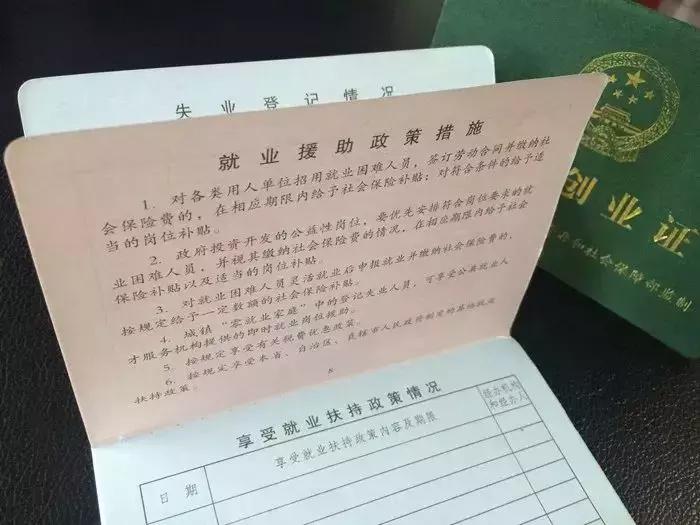 失业登记情况
就业援助政策措施
1. 对各类用人单位招用就业困难人员，签订劳动合同并缴纳社
会保险费的，在相应期限内给予社会保险补贴；对符合条件的给予适
当的岗位补贴。
2. 政府投资开发的公益性岗位，要优先安排符合岗位要求的就
业困难人员，并视其缴纳社会保险费的情况，在相应期限内给予社会
保险补贴以及适当的岗位补贴。
3. 对就业困难人员灵活就业后申报就业并缴纳社会保险费的，
按规定给予一定数额的社会保险补贴。
4. 城镇“零就业家庭”中的登记失业人员，可享受公共就业人
才服务机构提供的即时就业岗位援助。
5. 按规定享受有关税费优惠政策。
6. 按规定享受本省、自治区、直辖市人民政府制定的其他就业
扶持政策。
8
享受就业扶持政策情况
日期
享受就业扶持政策内容及期限
经办机构
和经办人
创业证
和社会保障部监制